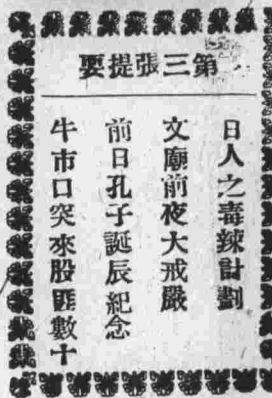 第三張提要
日人之毒辣計劃
文廟前夜大戒嚴
前日孔子誕辰紀念
牛市口突來股匪數十